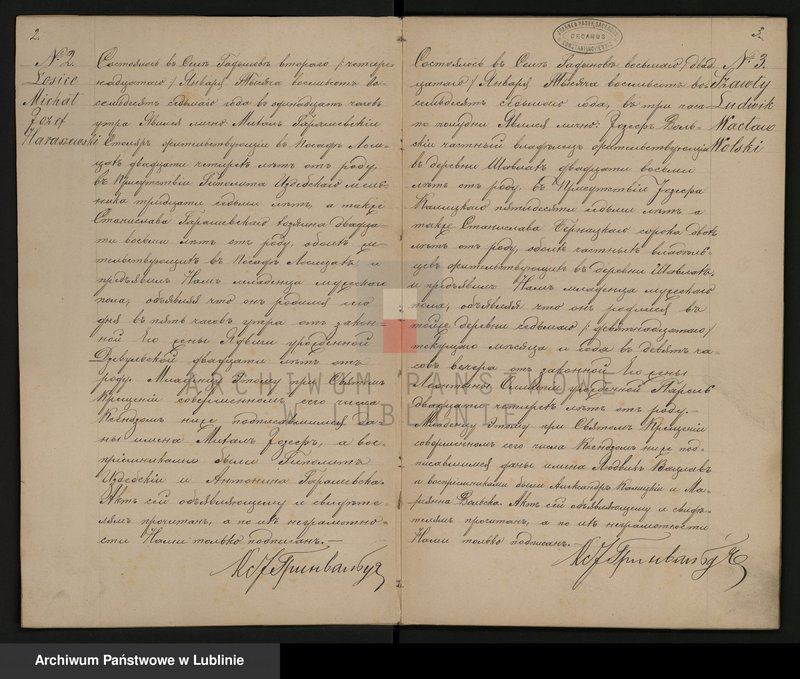 2.
№ 2
Łosice
Michał
Józef
Haraszewski
Состоялось въ Селѣ Гадыновъ второго / четыр-
надцатаго / Января Тысяча восемьсотъ во-
семьдесятъ седьмаго года въ одинадцать часовъ
утра. Явился лично: Михалъ Гарашевскій
Столяръ жительствующій въ Посадѣ Лоси-
цахъ двадцати четырехъ лѣтъ отъ роду,
въ Присутствіи Гиполита Издебскаго мель-
ника тридцати седьми лѣтъ, а также
Станислава Гарашевскаго хозяина двадца-
ти восьми лѣтъ отъ роду, обоихъ жи-
тельствующихъ въ Посадѣ Лосицахъ: и
предъявилъ Намъ младенца мужескаго
пола; объявляя что онъ родился сего
дня въ пять часовъ утра отъ закон-
ной его жены Ядвиги урожденной
двадцати лѣтъ отъ
роду. Младенцу Этому при Святомъ
Крещеніи совершенномъ сего числа
Ксендзомъ ниже подписавшимся да-
ны имена Михалъ Іозефъ, а вос-
пріемниками были Гиполитъ
Издебскій и Антонина Гарашевска.
Актъ сей объявляющему и свидѣте-
лямъ прочитанъ, а по ихъ неграмотно-
сти Нами только подписанъ.—
Кс. Гринвальдъ
3.
DECANUS
CONSTANTINOVIENSIS
№ 3.
Szawły
Ludwik
Wacław
Wolski
Состоялось въ Селѣ Гадыновъ восьмаго / двад-
цатаго / Января Тысяча восемьсотъ во-
семьдесятъ седьмого года, въ три часа
по полудни Явился лично: Іозефъ Воль-
скій частный владѣлецъ жительствующій
въ деревни Шавлахъ двадцати восьми
лѣтъ отъ роду, въ Присутствіи Іозефа
пятидесяти седьми лѣтъ а
также Станислава сорока двохъ
лѣтъ отъ роду, обоихъ частныхъ владѣль-
цевъ жительствующихъ въ деревни Шавлахъ,
и предъявилъ Намъ младенца мужескаго
пола, объявляя что онъ родился въ
тойже деревни седьмаго / девятнадцатаго /
текущаго мѣсяца и года въ девять ча-
совъ вечера отъ законной Его жены
Леонтины урожденной
двадцати четырехъ лѣтъ отъ роду.—
Младенцу этому при Святомъ Крещеніи
совершенномъ сего числа Ксендзомъ ниже под-
писавшимся даны имена Людвикъ Вацлавъ
а воспріемниками были Александръ и Ма-
ріянна Вольска. Актъ сей объявляющему и свидѣ-
телямъ прочитанъ, а по ихъ неграмотности
Нами только подписанъ.—
Кс. Гринвальдъ
ARCHIWUM PAŃSTWOWE
W LUBLINIE
Archiwum Państwowe w Lublinie